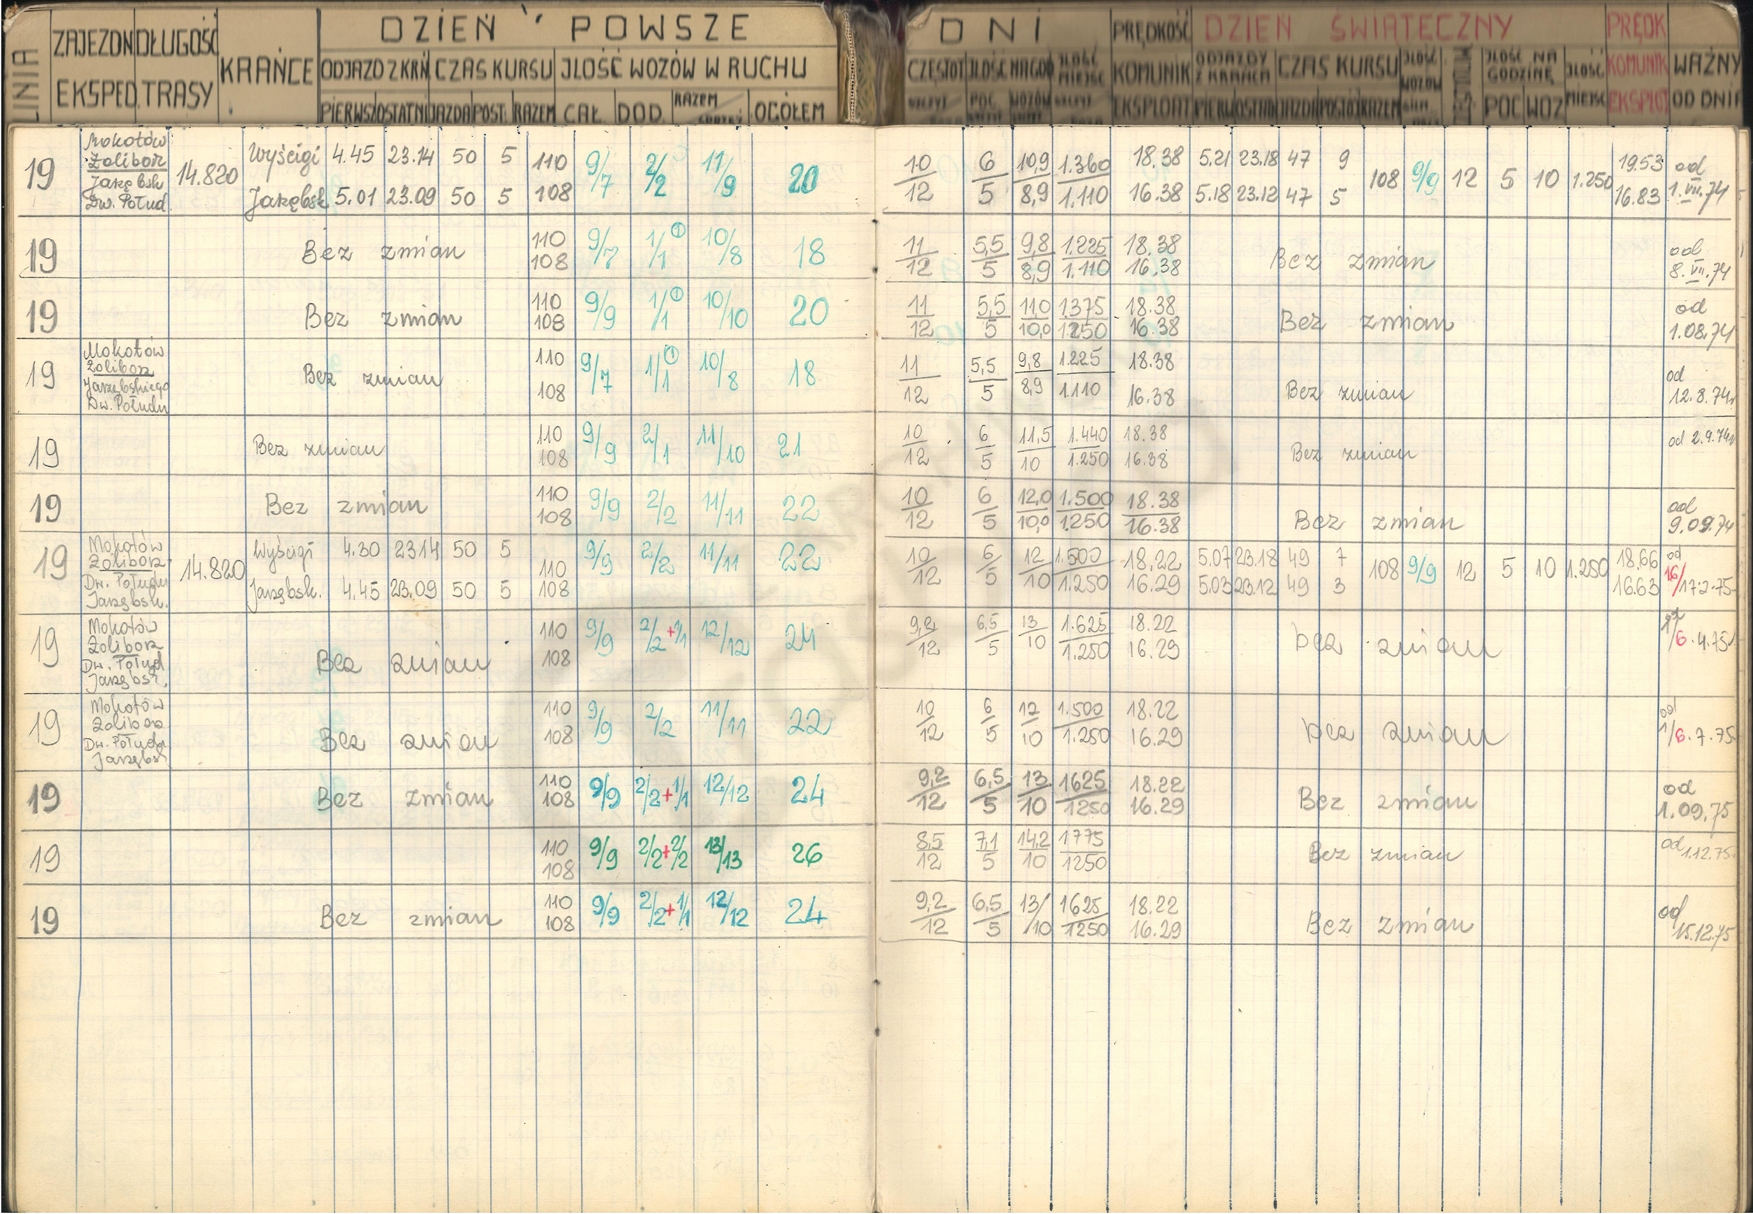 LINIA ZAJEZDN EKSPED. DŁUGOŚĆ TRASY KRAŃCE DZIEŃ POWSZE DNI PRĘDKOŚĆ KOMUNIK EKSPLOAT DZIEŃ ŚWIĄTECZNY PRĘDK KOMUNIK EKSPLOT WAŻNY OD DNIA
ODJAZD Z KRŃ CZAS KURSU JLOŚĆ WOZÓW W RUCHU CZĘSTOT JLOŚĆ NA GOD JLOŚĆ MIEJSC ODJAZDY Z KRAŃCA CZAS KURSU JLOŚĆ WOZÓW JLOŚĆ NA GODZINĘ JLOŚĆ MIEJSC
PIERWSZ OSTATNI JAZDA POST. RAZEM CAŁ. DOD. RAZEM OGÓŁEM POC WOZ
19 Mokotów Żoliborz Jarzębsk Dw. Połud. 14.820 Wyścigi 4.45 23.14 50 5 110 9/7 2/2 11/9 20 10/12 6/5 10,9/8,9 1.360/1.110 18.38 5.21 23.18 47 9 108 9/9 12 5 10 1.250 19.53 od 1.VII.74
Jarzębsk 5.01 23.09 50 5 108 16.38 5.18 23.12 47 5 16.83
19 Bez zmian 110 108 9/7 1/1 ① 10/8 18 11/12 5,5/5 9,8/8,9 1.225/1.110 18.38 16.38 Bez zmian od 8.VII.74
19 Bez zmian 110 108 9/9 1/1 ① 10/10 20 11/12 5,5/5 11,0/10,0 1375/1250 18.38 16.38 Bez zmian od 1.08.74
19 Mokotów Żoliborz Jarzębskiego Dw. Połudn Bez zmian 110 108 9/7 1/1 ① 10/8 18 11/12 5,5/5 9,8/8,9 1.225/1.110 18.38 16.38 Bez zmian od 12.8.74
19 Bez zmian 110 108 9/9 2/1 11/10 21 10/12 6/5 11,5/10 1.440/1.250 18.38 16.38 Bez zmian od 2.9.74
19 Bez zmian 110 108 9/9 2/2 11/11 22 10/12 6/5 12,0/10,0 1.500/1250 18.38 16.38 Bez zmian od 9.09.74
19 Mokotów Żoliborz Dw. Połudn Jarzębsk. 14.820 Wyścigi 4.30 23.14 50 5 110 9/9 2/2 11/11 22 10/12 6/5 12/10 1.500/1.250 18,22 5.07 23.18 49 7 108 9/9 12 5 10 1.250 18,66 od 16/17.2.75
Jarzębsk. 4.45 23.09 50 5 108 16.29 5.03 23.12 49 3 16.63
19 Mokotów Żoliborz Dw. Połud Jarzębsk. Bez zmian 110 108 9/9 2/2+1/1 12/12 24 9,2/12 6,5/5 13/10 1.625/1.250 18.22 16.29 bez zmian /6.4.75
19 Mokotów Żoliborz Dw. Połudn Jarzębsk Bez zmian 110 108 9/9 2/2 11/11 22 10/12 6/5 12/10 1.500/1.250 18.22 16.29 bez zmian od 1/6.7.75
19 Bez zmian 110 108 9/9 2/2+1/1 12/12 24 9,2/12 6,5/5 13/10 1625/1250 18.22 16.29 Bez zmian od 1.09.75
19 110 108 9/9 2/2+2/2 13/13 26 8,5/12 7,1/5 14,2/10 1775/1250 Bez zmian od 1.12.75
19 Bez zmian 110 108 9/9 2/2+1/1 12/12 24 9,2/12 6,5/5 13/10 1625/1250 18.22 16.29 Bez zmian od 15.12.75